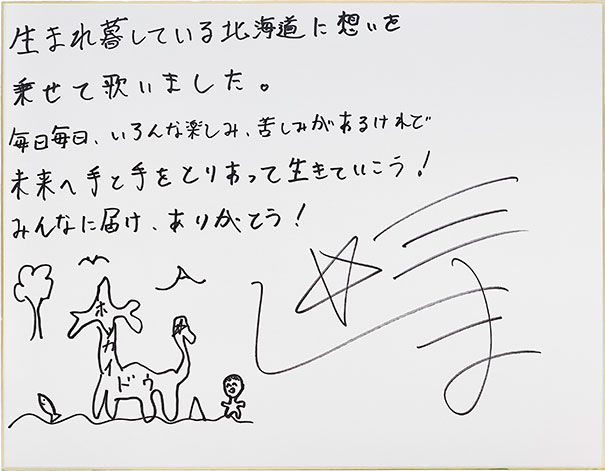 生まれ暮している北海道に想いを
乗せて歌いました。
毎日毎日、いろんな楽しみ、苦しみがあるけれど
未来へ手と手をとりあって生きていこう！
みんなに届け、ありがとう！
ホッカイドウ